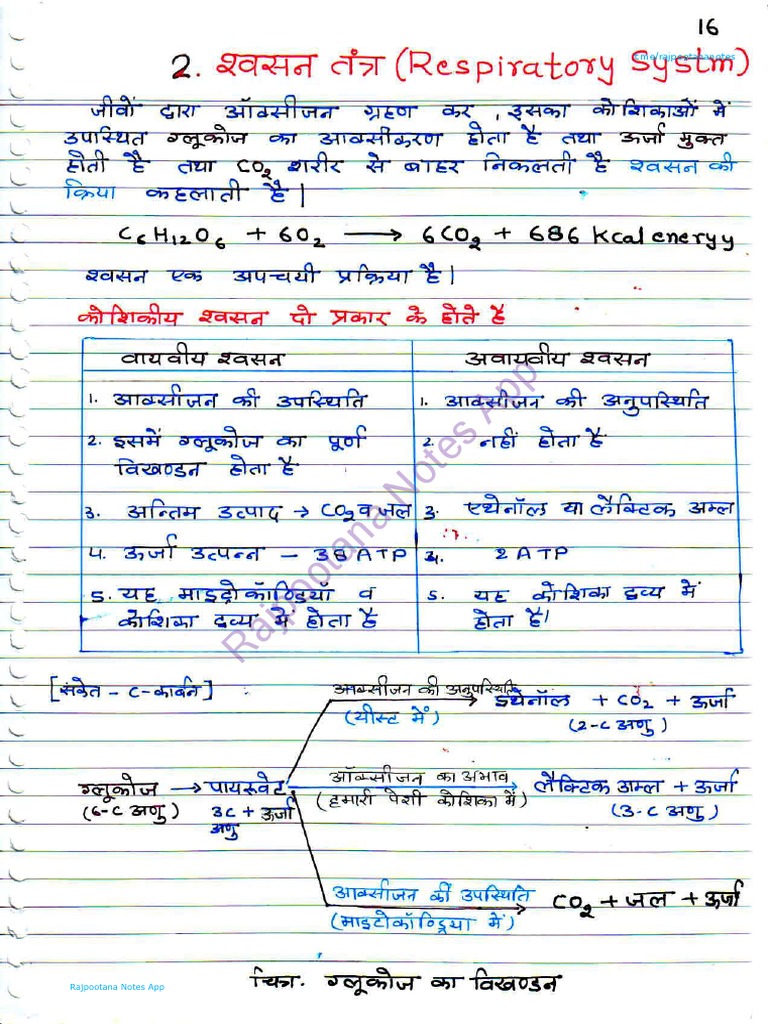 16
t.me/rajpootananotes
2. श्वसन तंत्र (Respiratory Systm)
जीवों द्वारा ऑक्सीजन ग्रहण कर, इसका कोशिकाओं में
उपस्थित ग्लूकोज का आक्सीकरण होता है तथा ऊर्जा मुक्त
होती है तथा CO₂ शरीर से बाहर निकलती है श्वसन की
क्रिया कहलाती है|
C₆H₁₂O₆ + 6O₂ ⟶ 6CO₂ + 686 Kcal eneryy
श्वसन एक अपचयी प्रक्रिया है|
कोशिकीय श्वसन दो प्रकार के होते है
वायवीय श्वसन अवायवीय श्वसन
1. आक्सीजन की उपस्थिति 1. आक्सीजन की अनुपस्थिति
2. इसमें ग्लूकोज का पूर्ण 2. नहीं होता है
विखण्डन होता है
3. अन्तिम उत्पाद → CO₂ व जल 3. एथेनॉल या लैक्टिक अम्ल
4. ऊर्जा उत्पन्न – 38 ATP 4. 2 ATP
5. यह माइट्रोकॉण्ड्रियॉ व 5. यह कोशिका द्रव्य में
कोशिका द्रव्य में होता है होता है|
[संकेत - C-कार्बन] आक्सीजन की अनुपस्थिति इथेनॉल + CO₂ + ऊर्जा
(यीस्ट में) (2-C अणु)
ग्लूकोज → पायरूवेट ऑक्सीजन का अभाव लैक्टिक अम्ल + ऊर्जा
(6-C अणु) 3C + ऊर्जा (हमारी पेशी कोशिका में) (3-C अणु)
अणु
आक्सीजन की उपस्थिति CO₂ + जल + ऊर्जा
(माइटोकॉण्ड्रिया में)
चित्र. ग्लूकोज का विखण्डन
Rajpootana Notes App
Rajpootana Notes App